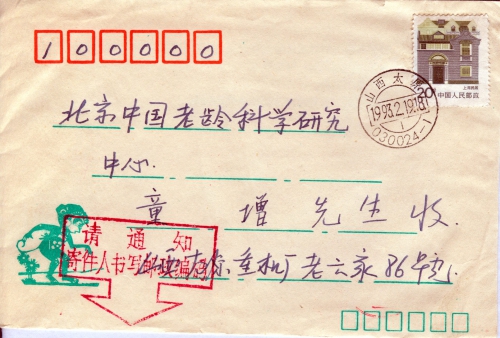 100000
20分
上海民居
中国人民邮政
山西太原
1993.2.19.18
1
030024-1
北京中国老龄科学研究
中心
童增先生收
请通知
寄件人书写邮政编码
重机厂老云家86号